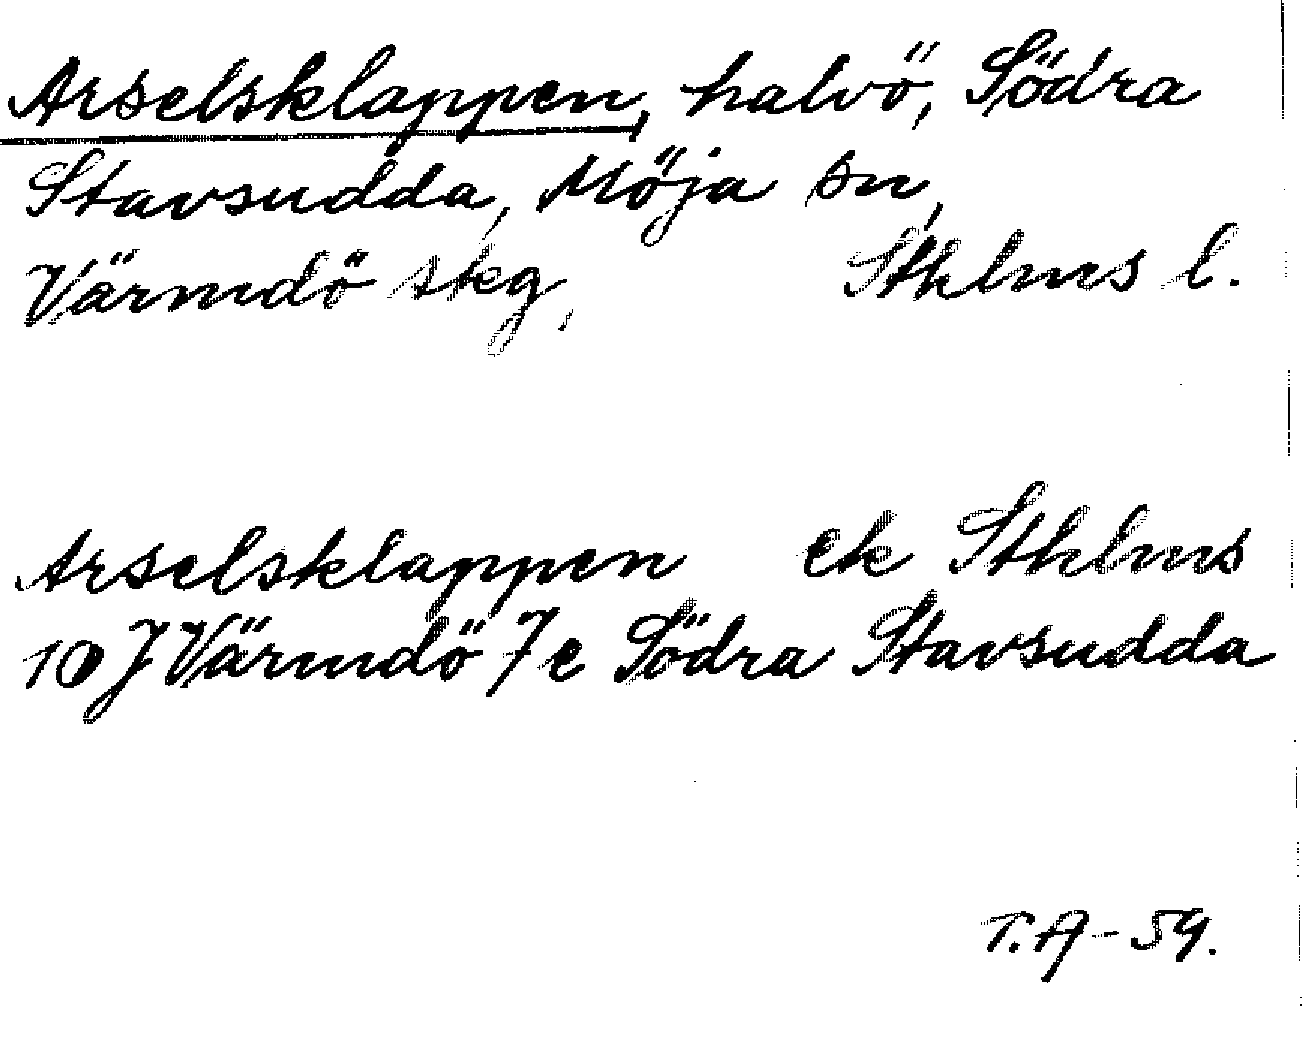 Arselsklappen, halvö, Södra
Stavsudda, Möja sn,
Värmdö skg, Sthlms l.
Arselsklappen ek Sthlms
10 J Värmdö 7e Södra Stavsudda
T.A-59.